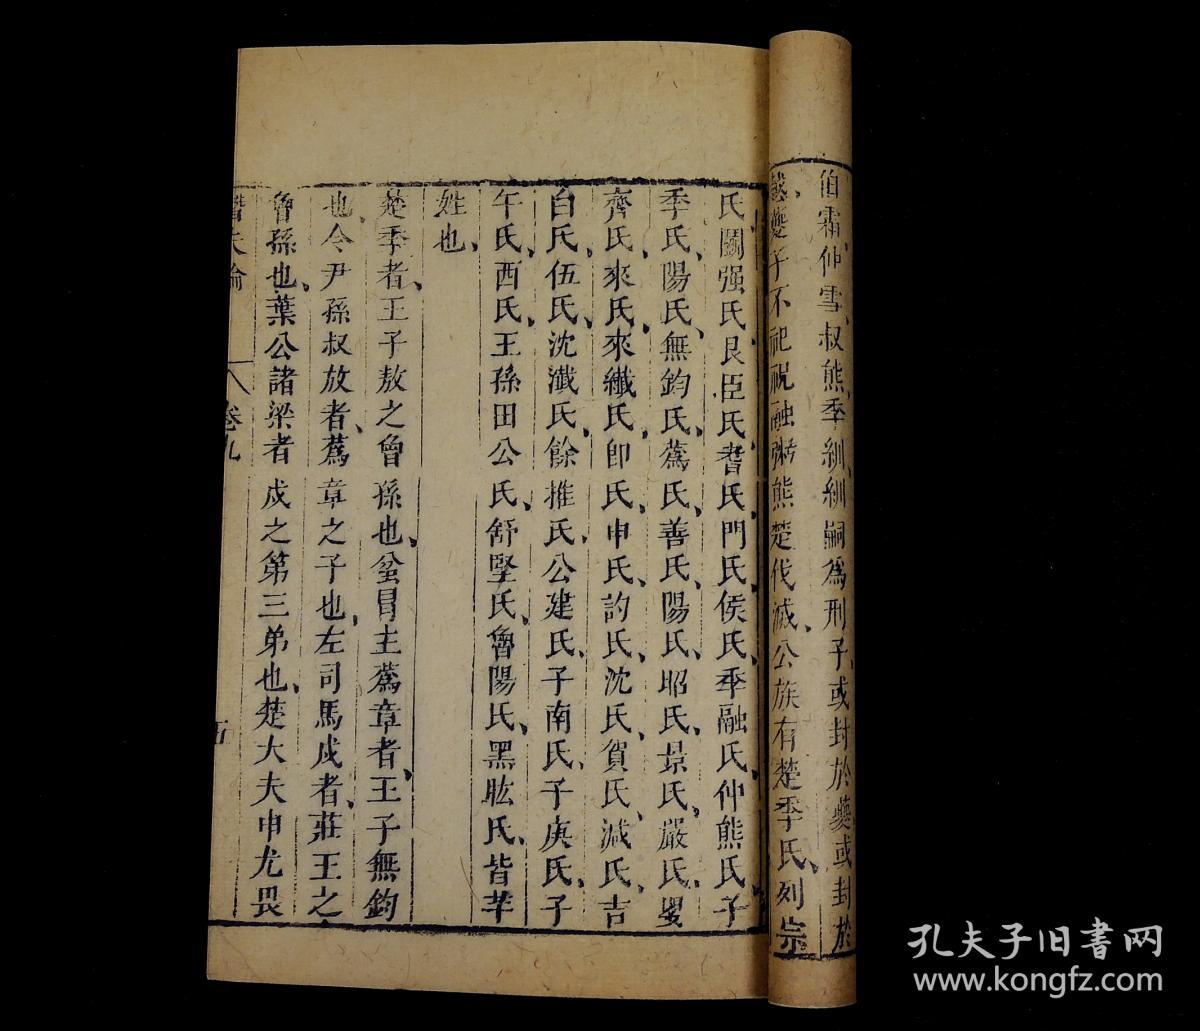 伯霜仲雪叔熊季紃紃嗣爲刑子或封於夔或封於
越夔子不祀祝融粥熊楚伐滅公族有楚季氏列宗
氏鬭强氏艮臣氏耆氏門氏侯氏季融氏仲熊氏子
季氏陽氏無鈞氏蔿氏善氏陽氏昭氏景氏嚴氏嬰
齊氏來氏來纖氏卽氏申氏訋氏沈氏賀氏減氏吉
白氏伍氏沈瀸氏餘推氏公建氏子南氏子庚氏子
午氏西氏王孫田公氏舒堅氏魯陽氏黑肱氏皆芈
姓也
楚季者王子敖之曾孫也蚠冒主蔿章者王子無鈞
也令尹孫叔放者蔿章之子也左司馬戍者莊王之
曾孫也葉公諸梁者戍之第三弟也楚大夫申尤畏
潛夫論 卷九 五
孔夫子旧書网
www.kongfz.com